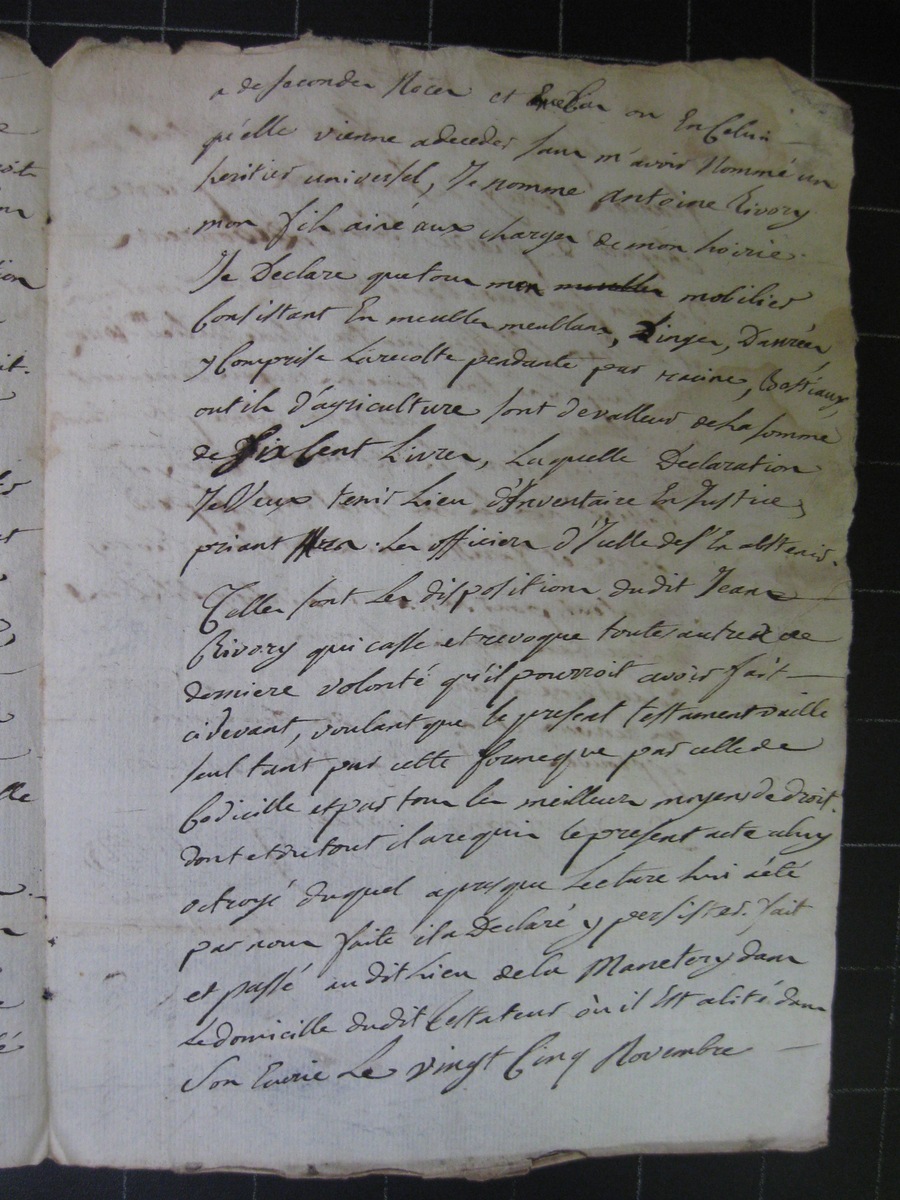 a de secondes Noces et ou En Celui
qu'elle vienne a deceder sans m'avoir Nommé un
heritier universel, Je nomme antoine Rivory
mon fils ainé aux charges de mon hoirie.
Je Declare que tous mon meubles mobilier
Consistant En meubles meublans, Linges, Danrées
y Comprise La recolte pendante par racine, Bestiaux,
outils d'agriculture sont de valleur de La somme
de Six Cent Livres, Laquelle Declaration
Je Veux tenir Lieu d'Inventaire En Justice,
priant Les officiers d'Icelle de s'En abstenir.
Telles sont Les dispositions dudit Jean
Rivory qui casse et revoque toutes autres de
derniere volonté qu'il pourroit avoir fait
cidevant, voulant que le present testament vaille
seul tant par cette forme que par celle de
Codicille et par tous les meilleurs moyens de droit.
dont et du tout il a requis le present acte a luy
octroyé duquel apres que Lecture lui a été
par nous faite il a Declaré y persister. fait
et passé audit Lieu de la Manetery dans
Le domicille dudit testateur où il Est alité dans
Son Ecurie Le vingt Cinq Novembre